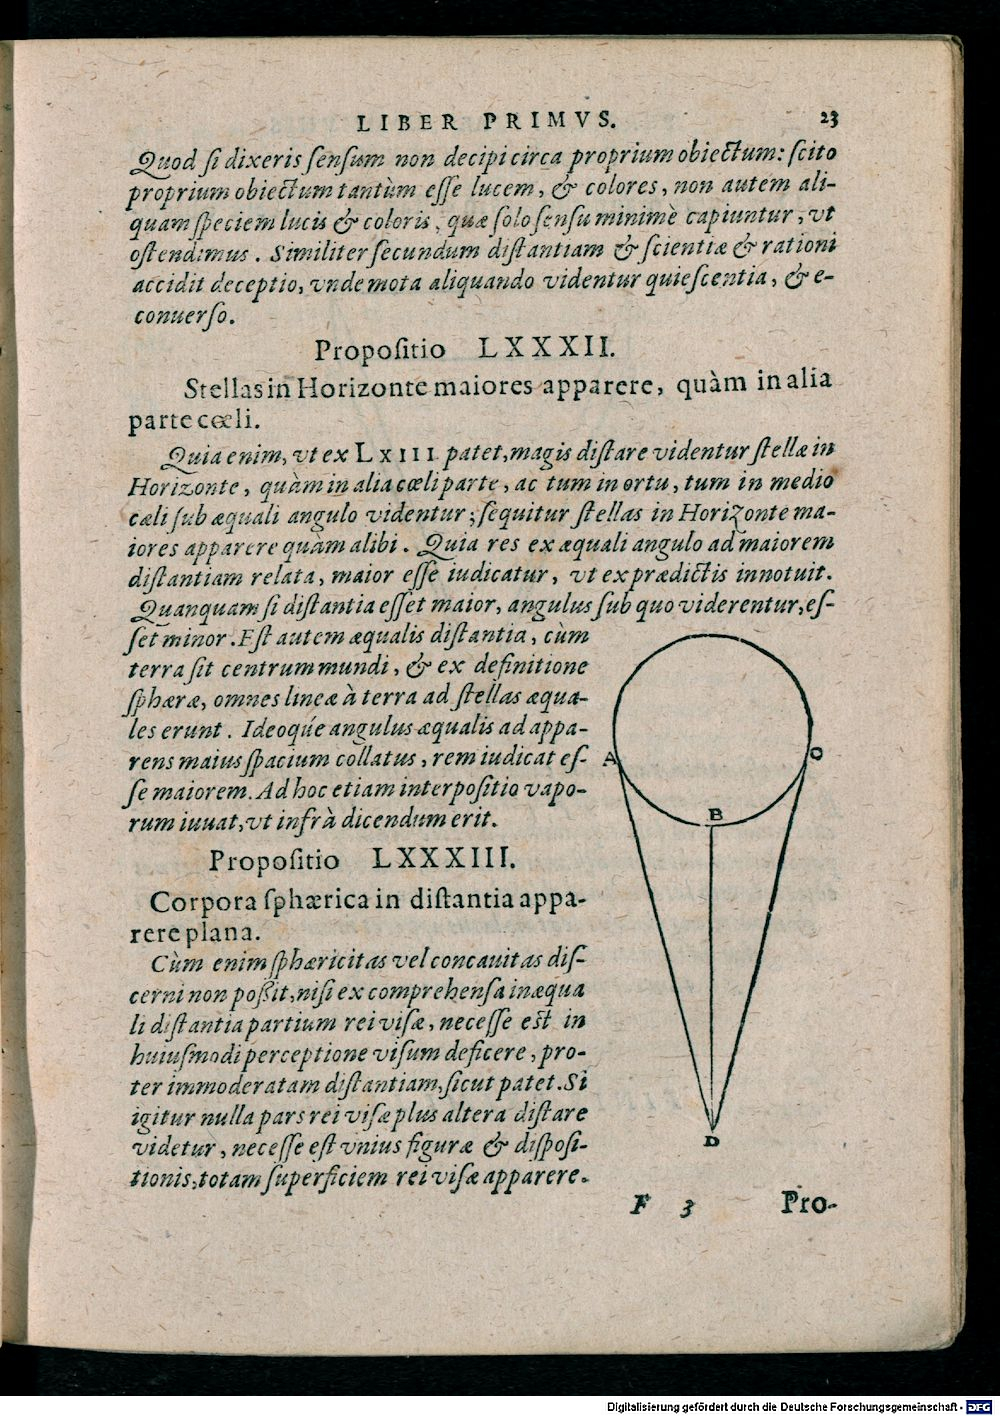 LIBER PRIMVS. 23
Quod ſi dixeris ſenſum non decipi circa proprium obiectum: ſcito
proprium obiectum tantùm eſſe lucem, & colores, non autem ali-
quam ſpeciem lucis & coloris, quæ ſolo ſenſu minimè capiuntur, vt
oſtendimus. Similiter ſecundum diſtantiam & ſcientiæ & rationi
accidit deceptio, vnde mota aliquando videntur quieſcentia, & e-
conuerſo.
Propoſitio LXXXII.
Stellas in Horizonte maiores apparere, quàm in alia
parte cœli.
Quia enim, vt ex LXIII patet, magis diſtare videntur ſtellæ in
Horizonte, quàm in alia cœli parte, ac tum in ortu, tum in medio
cæli ſub æquali angulo videntur; ſequitur ſtellas in Horizonte ma-
iores apparere quàm alibi. Quia res ex æquali angulo ad maiorem
diſtantiam relata, maior eſſe iudicatur, vt ex prædictis innotuit.
Quanquam ſi diſtantia eſſet maior, angulus ſub quo viderentur, eſ-
ſet minor. Eſt autem æqualis diſtantia, cùm
terra ſit centrum mundi, & ex definitione
ſphæræ, omnes lineæ à terra ad ſtellas æqua-
les erunt. Ideoqúe angulus æqualis ad appa-
rens maius ſpacium collatus, rem iudicat eſ-
ſe maiorem. Ad hoc etiam interpoſitio vapo-
rum iuuat, vt infrà dicendum erit.
Propoſitio LXXXIII.
Corpora ſphærica in diſtantia appa-
rere plana.
Cùm enim ſphæricitas vel concauitas diſ-
cerni non poßit, niſi ex comprehenſa inæqua
li diſtantia partium rei viſæ, neceſſe est in
huiuſmodi perceptione viſum deficere, pro-
ter immoderatam diſtantiam, ſicut patet. Si
igitur nulla pars rei viſæ plus altera diſtare
videtur, neceſſe eſt vnius figuræ & diſpoſi-
tionis, totam ſuperficiem rei viſæ apparere.
A
C
B
D
F 3 Pro-
Digitalisierung gefördert durch die Deutsche Forschungsgemeinschaft - DFG